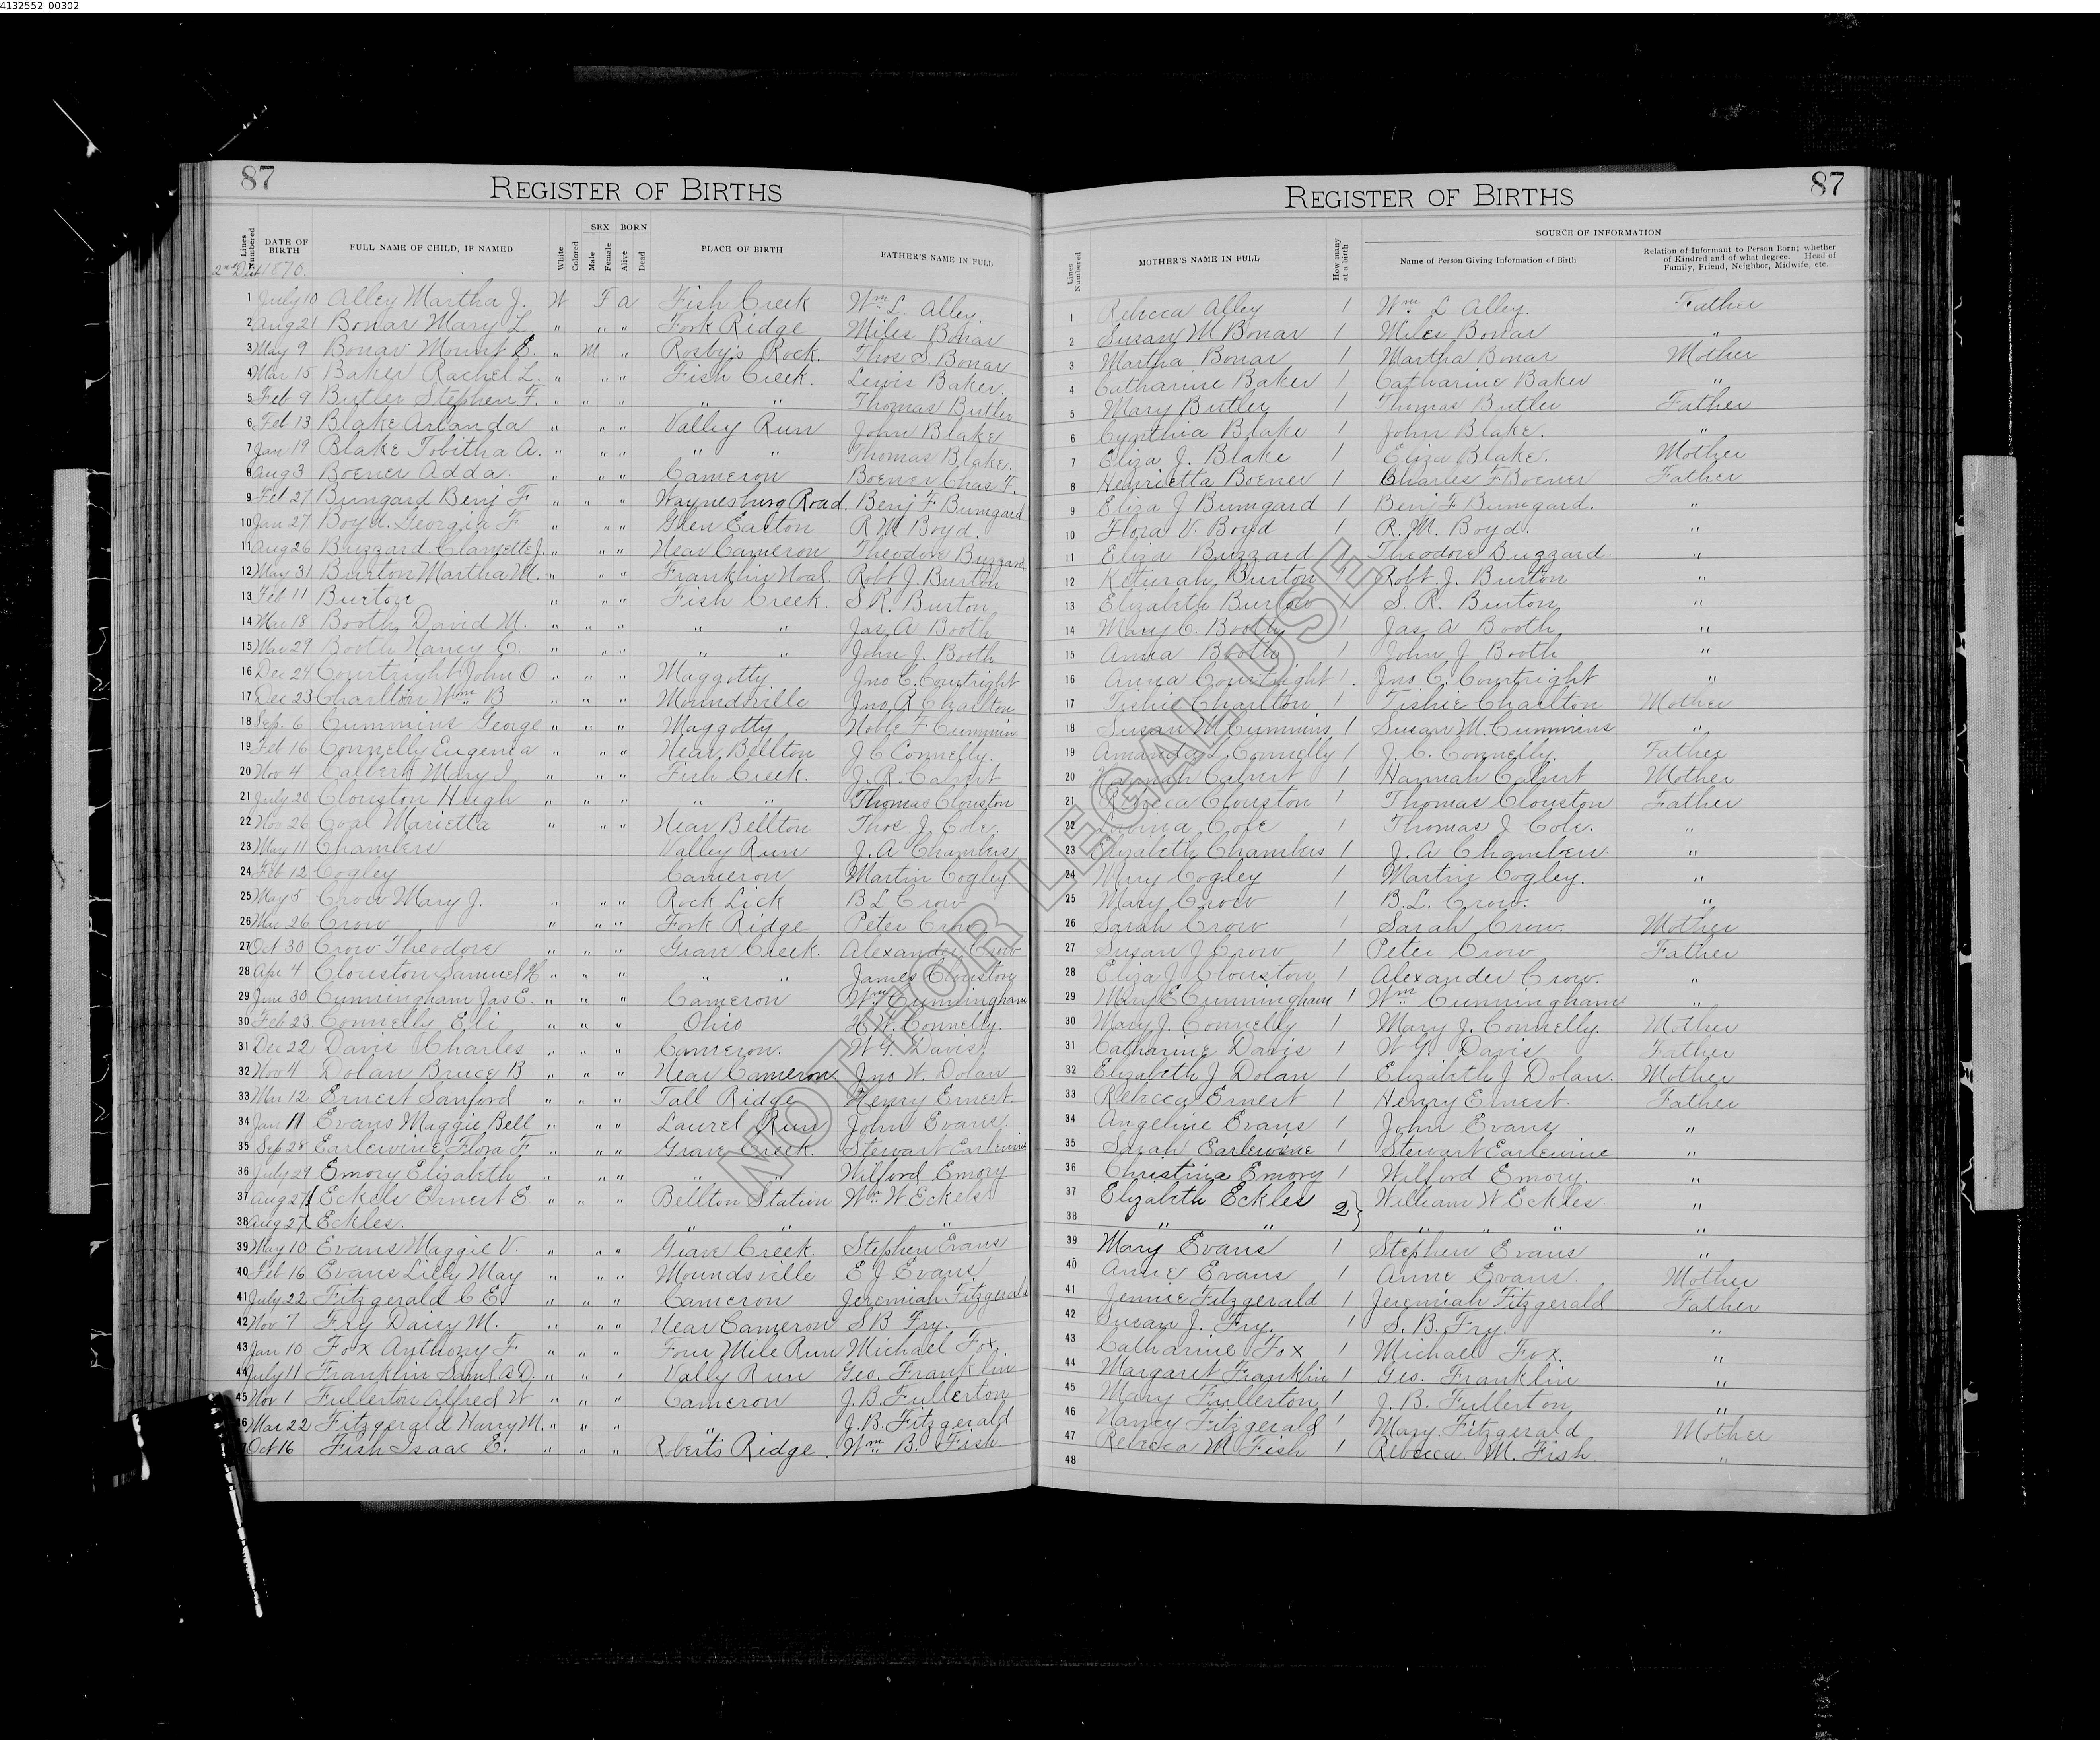 4132552_00302
87
REGISTER OF BIRTHS
Lines Numbered DATE OF BIRTH FULL NAME OF CHILD, IF NAMED White Colored SEX Male Female BORN Alive Dead PLACE OF BIRTH FATHER'S NAME IN FULL
2nd Dist 1870.
1 July 10 Alley Martha J. W F a Fish Creek Wm L. Alley.
2 Aug 21 Bonar Mary L. " " " Fork Ridge Miles Bonar
3 May 9 Bonar Mount E. " M " Rosby's Rock. Thos S. Bonar
4 Mar 15 Baker Rachel L. " " " Fish Creek. Lewis Baker.
5 Feb 9 Butler Stephen F. " " " " " Thomas Butler
6 Feb 13 Blake Arlanda " " " Valley Run John Blake
7 Jan 19 Blake Tobitha A. " " " " " Thomas Blake.
8 Aug 3 Boener Adda. " " " Cameron Boener Chas F.
9 Feb 27 Bumgard Benj F " " " Waynesburg Road. Benj F. Bumgard
10 Jan 27 Boyd. Georgia F " " " Glen Easton R M Boyd.
11 Aug 26 Buzzard Clamette J. " " " Near Cameron Theodore Buzzard
12 May 31 Burton Martha M. " " " Franklin Robt J. Burton
13 Feb 11 Burton " " " Fish Creek. S R. Burton
14 Mar 18 Booth David M. " " " " " Jas A Booth
15 Mar 29 Booth Nancy C. " " " " " John J. Booth
16 Dec 24 Courtright John O " " " Maggotty Jno C. Courtright
17 Dec 23 Charlton Wm B " " " Moundsville Jno R Charlton
18 Sep. 6 Cummins George " " " Maggotty Noble F. Cummin
19 Feb 16 Connelly Eugenia " " " Near Bellton J C Connelly.
20 Nov 4 Calbert Mary I " " " Fish Creek. J. R. Calvert
21 July 20 Clouston Hugh " " " " " Thomas Clouston
22 Nov 26 Coal Marietta " " " Near Bellton Thos J. Cole.
23 May 11 Chambers Valley Run J. A Chambers
24 Feb 12 Cogley Cameron Martin Cogley.
25 May 5 Crow Mary J. " " " Rock Lick B L Crow
26 Mar 26 Crow " " " Fork Ridge Peter Crow
27 Oct 30 Crow Theodore " " " Grave Creek. Alexander Crow
28 Apr 4 Clouston Samuel H " " " " " James Clouston
29 June 30 Cunningham Jas E. " " " Cameron Wm Cunningham
30 Feb 23. Connelly Eli " " " Ohio H. W. Connelly.
31 Dec 22 Davis Charles " " " Cameron. W G. Davis
32 Nov 4 Dolan Bruce B " " " Near Cameron Jno W. Dolan
33 Mar 12 Ernest Sanford " " " Tall Ridge Henry Ernest.
34 Jan 11 Evans Maggie Bell " " " Laurel Run John Evans.
35 Sep 28 Earlewine Flora F " " " Grave Creek. Stewart Earlewine
36 July 29 Emory Elizabeth " " " " " Wilford Emory
37 Aug 27 Eckels Ernest E. " " " Bellton Station Wm. W Eckels
38 Aug 27 Eckles. " " "
39 May 10 Evans Maggie V. " " " Grave Creek. Stephen Evans
40 Feb 16 Evans Lilly May " " " Moundsville E J Evans.
41 July 22 Fitzgerald C E. " " " Cameron Jeremiah Fitzgerald
42 Nov 7 Fry Daisy M. " " " Near Cameron S B Fry.
43 Jan 10 Fox Anthony F " " " Four Mile Run Michael Fox.
44 July 11 Franklin Saml A D. " " " Vally Run Geo. Franklin
45 Nov 1 Fullerton Alfred W " " " Cameron J. B. Fullerton
46 Mar 22 Fitzgerald Harry M. " " " " J. B. Fitzgerald
Oct 16 Fish Isaac E. " " " Roberts Ridge. Wm B. Fish
87
REGISTER OF BIRTHS
Lines Numbered MOTHER'S NAME IN FULL How many at a birth SOURCE OF INFORMATION
Name of Person Giving Information of Birth Relation of Informant to Person Born; whether of Kindred and of what degree. Head of Family, Friend, Neighbor, Midwife, etc.
1 Rebecca Alley 1 Wm. L Alley. Father
2 Susan M Bonar 1 Miles Bonar "
3 Martha Bonar 1 Martha Bonar Mother
4 Catharine Baker 1 Catharine Baker "
5 Mary Butler 1 Thomas Butler Father
6 Cynthia Blake 1 John Blake. "
7 Eliza J. Blake 1 Eliza Blake. Mother
8 Henrietta Boener 1 Charles F Boener Father
9 Eliza J Bumgard 1 Benj F Bumgard. "
10 Flora V. Boyd 1 R. M. Boyd. "
11 Eliza Buzzard 1 Theodore Buzzard. "
12 Keturah Burton 1 Robt. J. Burton "
13 Elizabeth Burton 1 S. R. Burton "
14 Mary C. Booth 1 Jas A Booth "
15 Anna Booth 1 John J Booth "
16 Anna Courtright 1. Jno C. Courtright "
17 Tishie Charlton 1 Tishie Charlton Mother
18 Susan M Cummins 1 Susan M. Cummins "
19 Amanda L Connelly 1 J. C. Connelly. Father
20 Hannah Calvert 1 Hannah Calvert Mother
21 Rebecca Clouston 1 Thomas Clouston Father
22 Lavina Cole 1 Thomas J Cole. "
23 Elizabeth Chambers 1 J. A Chambers. "
24 Mary Cogley 1 Martin Cogley. "
25 Mary Crow 1 B. L. Crow. "
26 Sarah Crow 1 Sarah Crow. Mother
27 Susan J Crow 1 Peter Crow Father
28 Eliza J Clouston 1 Alexander Crow. "
29 Mary E Cunningham 1 Wm Cunningham "
30 Mary J. Connelly 1 Mary J. Connelly. Mother
31 Catharine Davis 1 W G. Davis Father
32 Elizabeth J Dolan 1 Elizabeth J Dolan. Mother
33 Rebecca Ernest 1 Henry Ernest Father
34 Angeline Evans 1 John Evans "
35 Sarah Earlewine 1 Stewart Earlewine "
36 Christina Emory 1 Wilford Emory. "
37 Elizabeth Eckles 2 William W Eckles. "
38 " " " " " "
39 Mary Evans 1 Stephen Evans "
40 Anne Evans 1 Anne Evans. Mother
41 Jennie Fitzgerald 1 Jeremiah Fitzgerald Father
42 Susan J. Fry. 1 S. B. Fry. "
43 Catharine Fox 1 Michael Fox. "
44 Margaret Franklin 1 Geo. Franklin "
45 Mary Fullerton 1 J. B. Fullerton "
46 Nancy Fitzgerald 1 Mary Fitzgerald Mother
47 Rebecca M Fish 1 Rebecca. M. Fish "
48
NOT FOR LEGAL USE